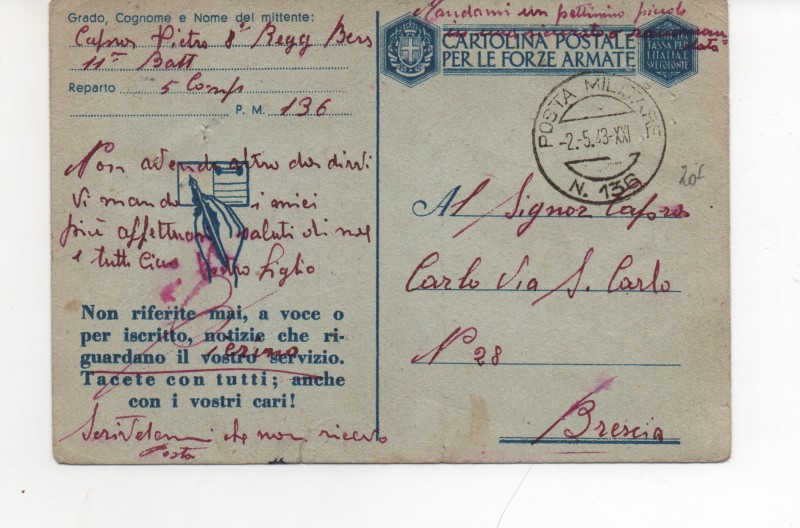 Grado, Cognome e Nome del mittente:
Pietro 8° Regg Bers
11° Batt
Reparto 5 Comp
P. M. 136
Non avendo altro da dirvi
Vi mando i miei
più affettuosi saluti di nuovo
e tutti Ciao Vostro figlio
Non riferite mai, a voce o
per iscritto, notizie che ri-
guardano il vostro servizio.
Tacete con tutti; anche
con i vostri cari!
Scrivetemi che non ricevo
Posta
Mandami un pettinino piccolo
CARTOLINA POSTALE
PER LE FORZE ARMATE
TASSA PER
L'ITALIA E
SUE COLONIE
POSTA MILITARE
-2.-5.43-XXI
N. 136
20£
Al Signor
Carlo Via S. Carlo
N° 28
Brescia